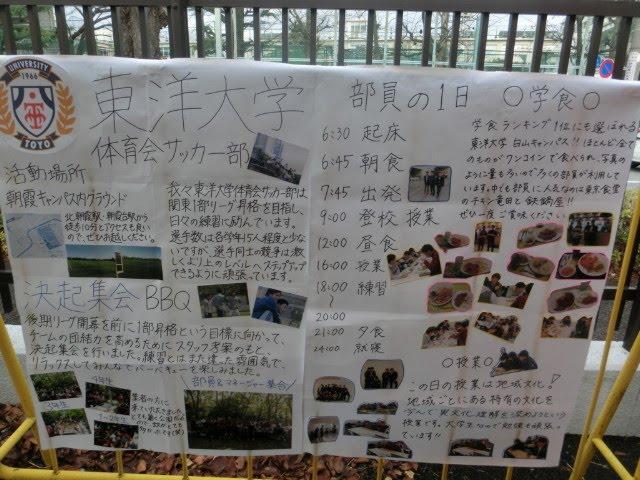 UNIVERSITY
1966
TOYO
東洋大学
体育会サッカー部
活動場所
朝霞キャンパス内グラウンド
北朝霞駅・朝霞台駅から
徒歩10分とアクセスも良い
ので、ぜひお越しください。
我々東洋大学体育会サッカー部は
関東1部リーグ昇格を目指し、
日々の練習に励んでいます。
選手数は各学年15人程度と少な
いですが、選手同士の競争は激
しくより上のレベルへステップアップ
できるように頑張っています。
決起集会 BBQ
後期リーグ開幕を前に1部昇格という目標に向かって、
チームの団結力を高めるためにスタッフ考案のもと、
決起集会を行いました。練習とはまた違った雰囲気で、
リラックスしてみんなでバーベキューを楽しみました。
部員&マネージャー集合!
部員の1日
6:30 起床
6:45 朝食
7:45 出発
9:00 登校 授業
12:00 昼食
16:00 授業
18:00 練習
~
20:00
21:00 夕食
24:00 就寝
○学食○
学食ランキング1位にも選ばれる!
東洋大学 白山キャンパス!!ほとんど全て
のものがワンコインで食べられ、写真の
ように量も多いのでたくさんの部員が利用して
います。中でも部員に人気なのは東京食堂
のチキン竜田と鉄鍋屋!!
ぜひ一度ご賞味ください
○授業○
この日の授業は地域文化!
地域ごとにある特有の文化を
学んで異文化理解を深めようという
授業です。大学生なので勉強も頑張
っています!!